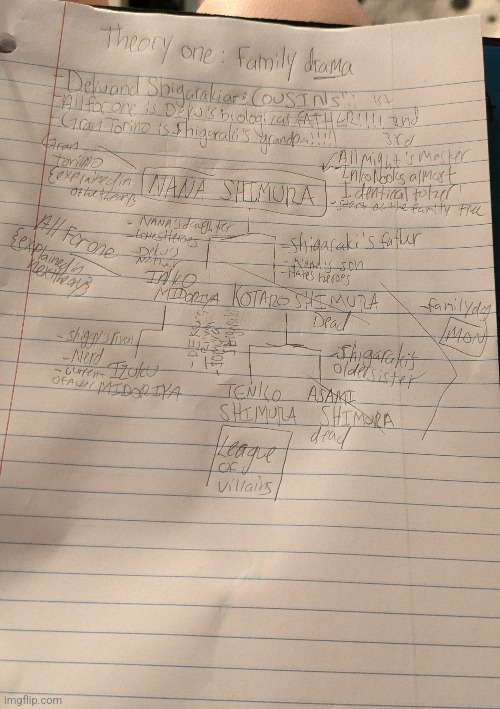 Theory one: Family drama
- Deku and Shigaraki are COUSINS!!! 1st
- All for one is Deku's biological FATHER!!!! 2nd
- Gran Torino is Shigaraki's grandpa!!!! 3rd
Gran
Torino
{explained in
other theory
All Might's Master
Inko looks almost
Identical to her
- Start of the family tree
NANA SHIMURA
All For one
{explained in
- NANA's daughter
- Loves Heroes
- Deku's
INKO
MIDORIYA
- Shigaraki's father
- Nana's son
- Hates heroes
KOTARO SHIMURA
Dead
- family dog
MON
- Nerd
IZUKU
MIDORIYA
- Shigaraki's
older sister
TENKO
SHIMURA
ASAMI
SHIMURA
dead
League
OF
villains
imgflip.com